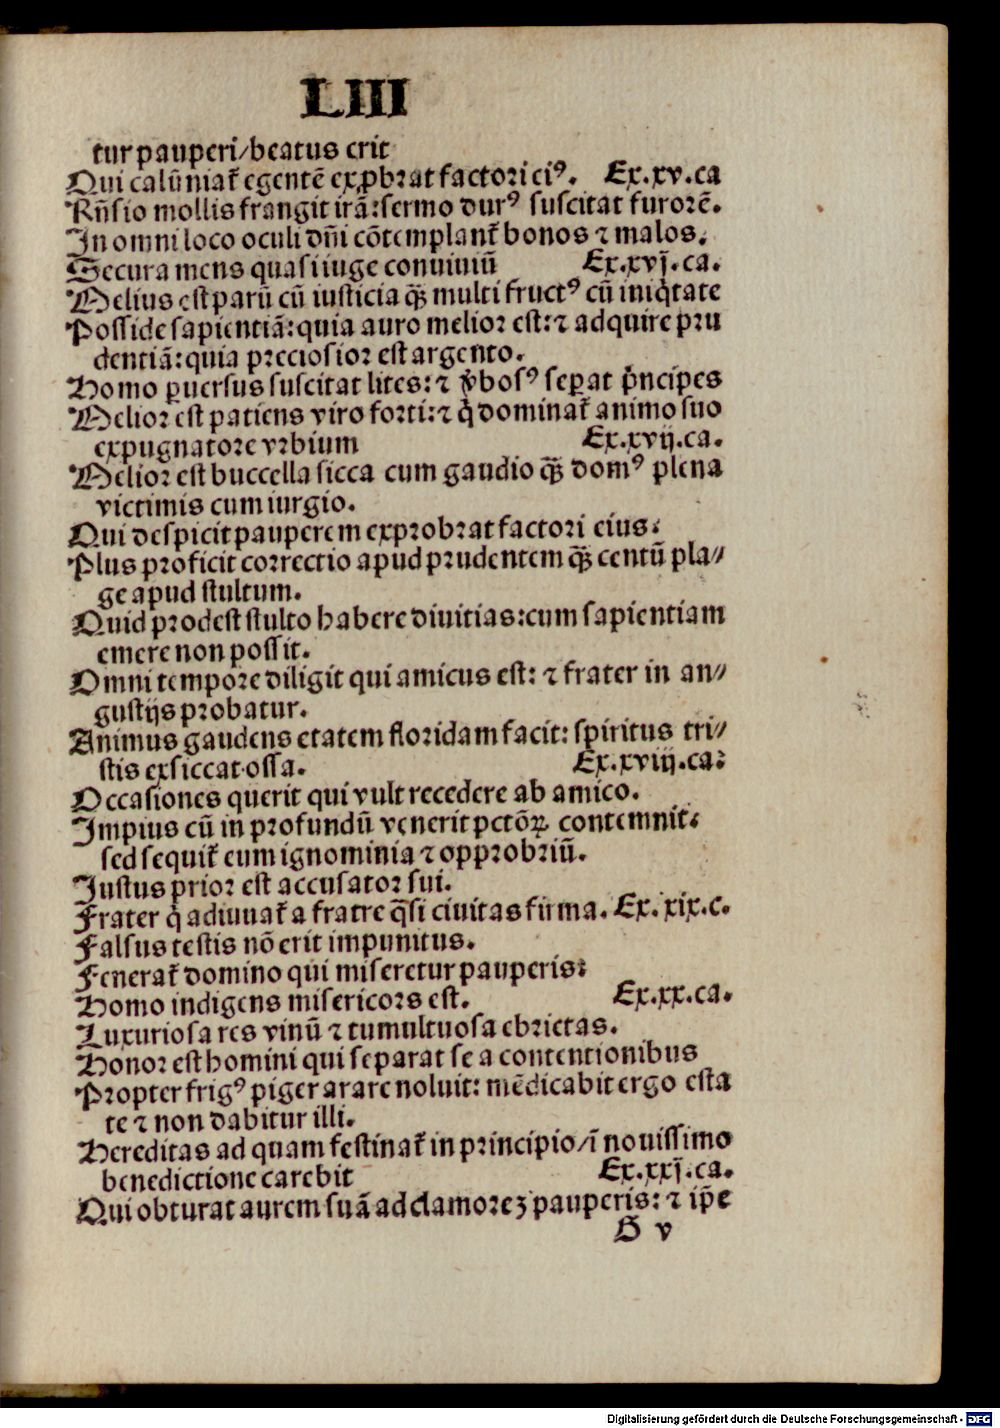 LIII
tur pauperi/beatus erit
Qui calūniat̄ egentē exꝓbrat factori eiꝰ. Ex.xv.ca
Rn̄sio mollis frangit irā: sermo durꝰ suscitat furorē.
In omni loco oculi dn̄i cōtemplant̄ bonos ⁊ malos.
Secura mens quasi iuge conuiuiū Ex.xvj.ca.
Melius est parū cū iusticia qͣꝫ multi fructꝰ cū iniqͥtate
Posside sapientiā: quia auro melior est: ⁊ adquire pru
dentiā: quia preciosior est argento.
Homo ꝑuersus suscitat lites: ⁊ v̓bosꝰ seꝑat pͥncipes
Melior est patiens viro forti: ⁊ qͥ dominat̄ animo suo
expugnatore vrbium Ex.xvij.ca.
Melior est buccella sicca cum gaudio qͣꝫ domꝰ plena
victimis cum iurgio.
Qui despicit pauperem exprobrat factori eius.
Plus proficit correctio apud prudentem qͣꝫ centū pla⸗
ge apud stultum.
Quid prodest stulto habere diuitias: cum sapientiam
emere non possit.
Omni tempore diligit qui amicus est: ⁊ frater in an⸗
gustijs probatur.
Animus gaudens etatem floridam facit: spiritus tri⸗
stis exsiccat ossa. Ex.xviij.ca.
Occasiones querit qui vult recedere ab amico.
Impius cū in profundū venerit pctōꝝ contemnit.
sed sequit̄ eum ignominia ⁊ opprobriū.
Iustus prior est accusator sui.
Frater qͥ adiuuat̄ a fratre qͣsi ciuitas firma. Ex.xix.c.
Falsus testis nō erit impunitus.
Fenerat̄ domino qui miseretur pauperis:
Homo indigens misericors est. Ex.xx.ca.
Luxuriosa res vinū ⁊ tumultuosa ebrietas.
Honor est homini qui separat se a contentionibus
Propter frigꝰ piger arare noluit: mēdicabit ergo esta
te ⁊ non dabitur illi.
Hereditas ad quam festinat̄ in principio/ī nouissimo
benedictione carebit Ex.xxj.ca.
Qui obturat aurem suā ad clamoreꝫ pauperis: ⁊ ip̄e
G v
Digitalisierung gefördert durch die Deutsche Forschungsgemeinschaft - DFG